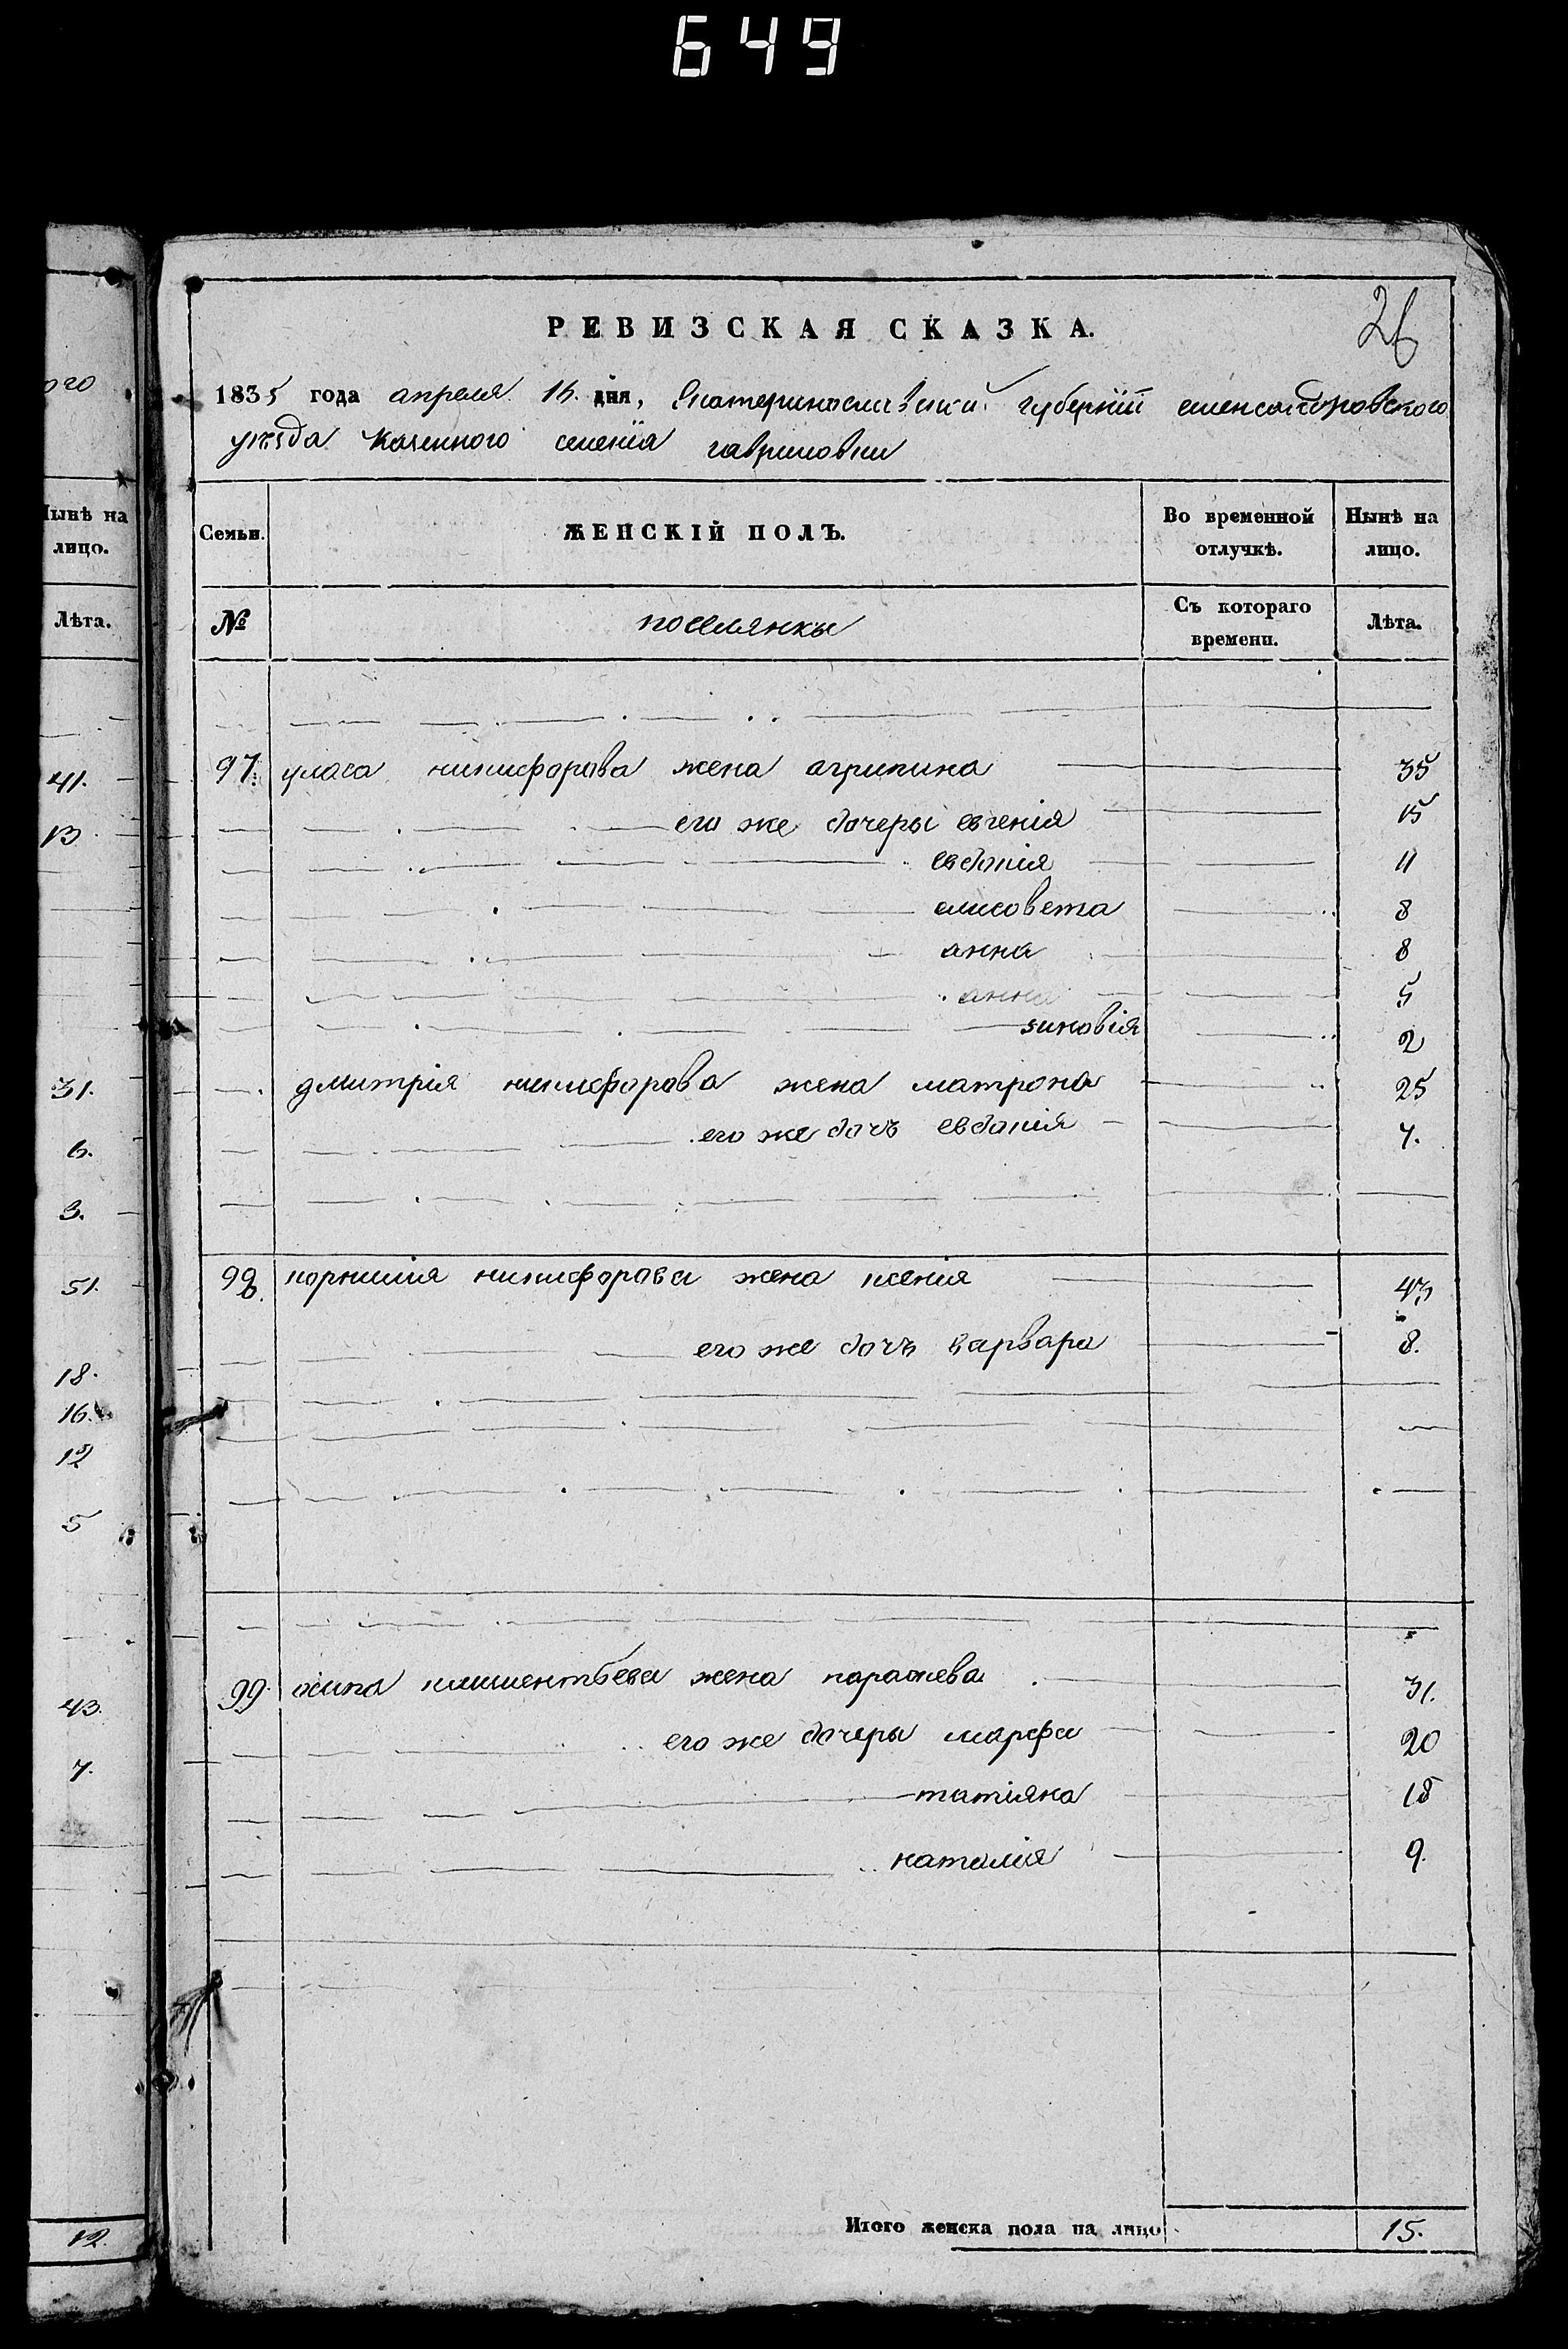 649
ого
Нынѣ на
лицо.
Лѣта.
41.
13
31.
6.
3.
51.
18.
16.
12
5
43.
7.
12.
26
РЕВИЗСКАЯ СКАЗКА.
1835 года апреля 16. дня, Екатеринославской губерніи александровского
уѣзда казенного селенія гавриловки
Семьи. ЖЕНСКІЙ ПОЛЪ. Во временной отлучкѣ. Нынѣ на лицо.
№ поселянкы Съ котораго времени. Лѣта.
97. уласа никифорова жена агрипина 35
его же дочеры евгенія 15
евдокія 11
елисовета 8
анна 8
анна 5
зиновія 2
дмитрія никифорова жена матрона 25
его же дочъ евдокія 7.
98. корнилия никифорова жена ксенія 43
его же дочъ варвара 8.
99. осипа климентьева жена параскева 31.
его же дочеры марфа 20
татіяна 18
наталія 9.
Итого женска пола на лицо 15.